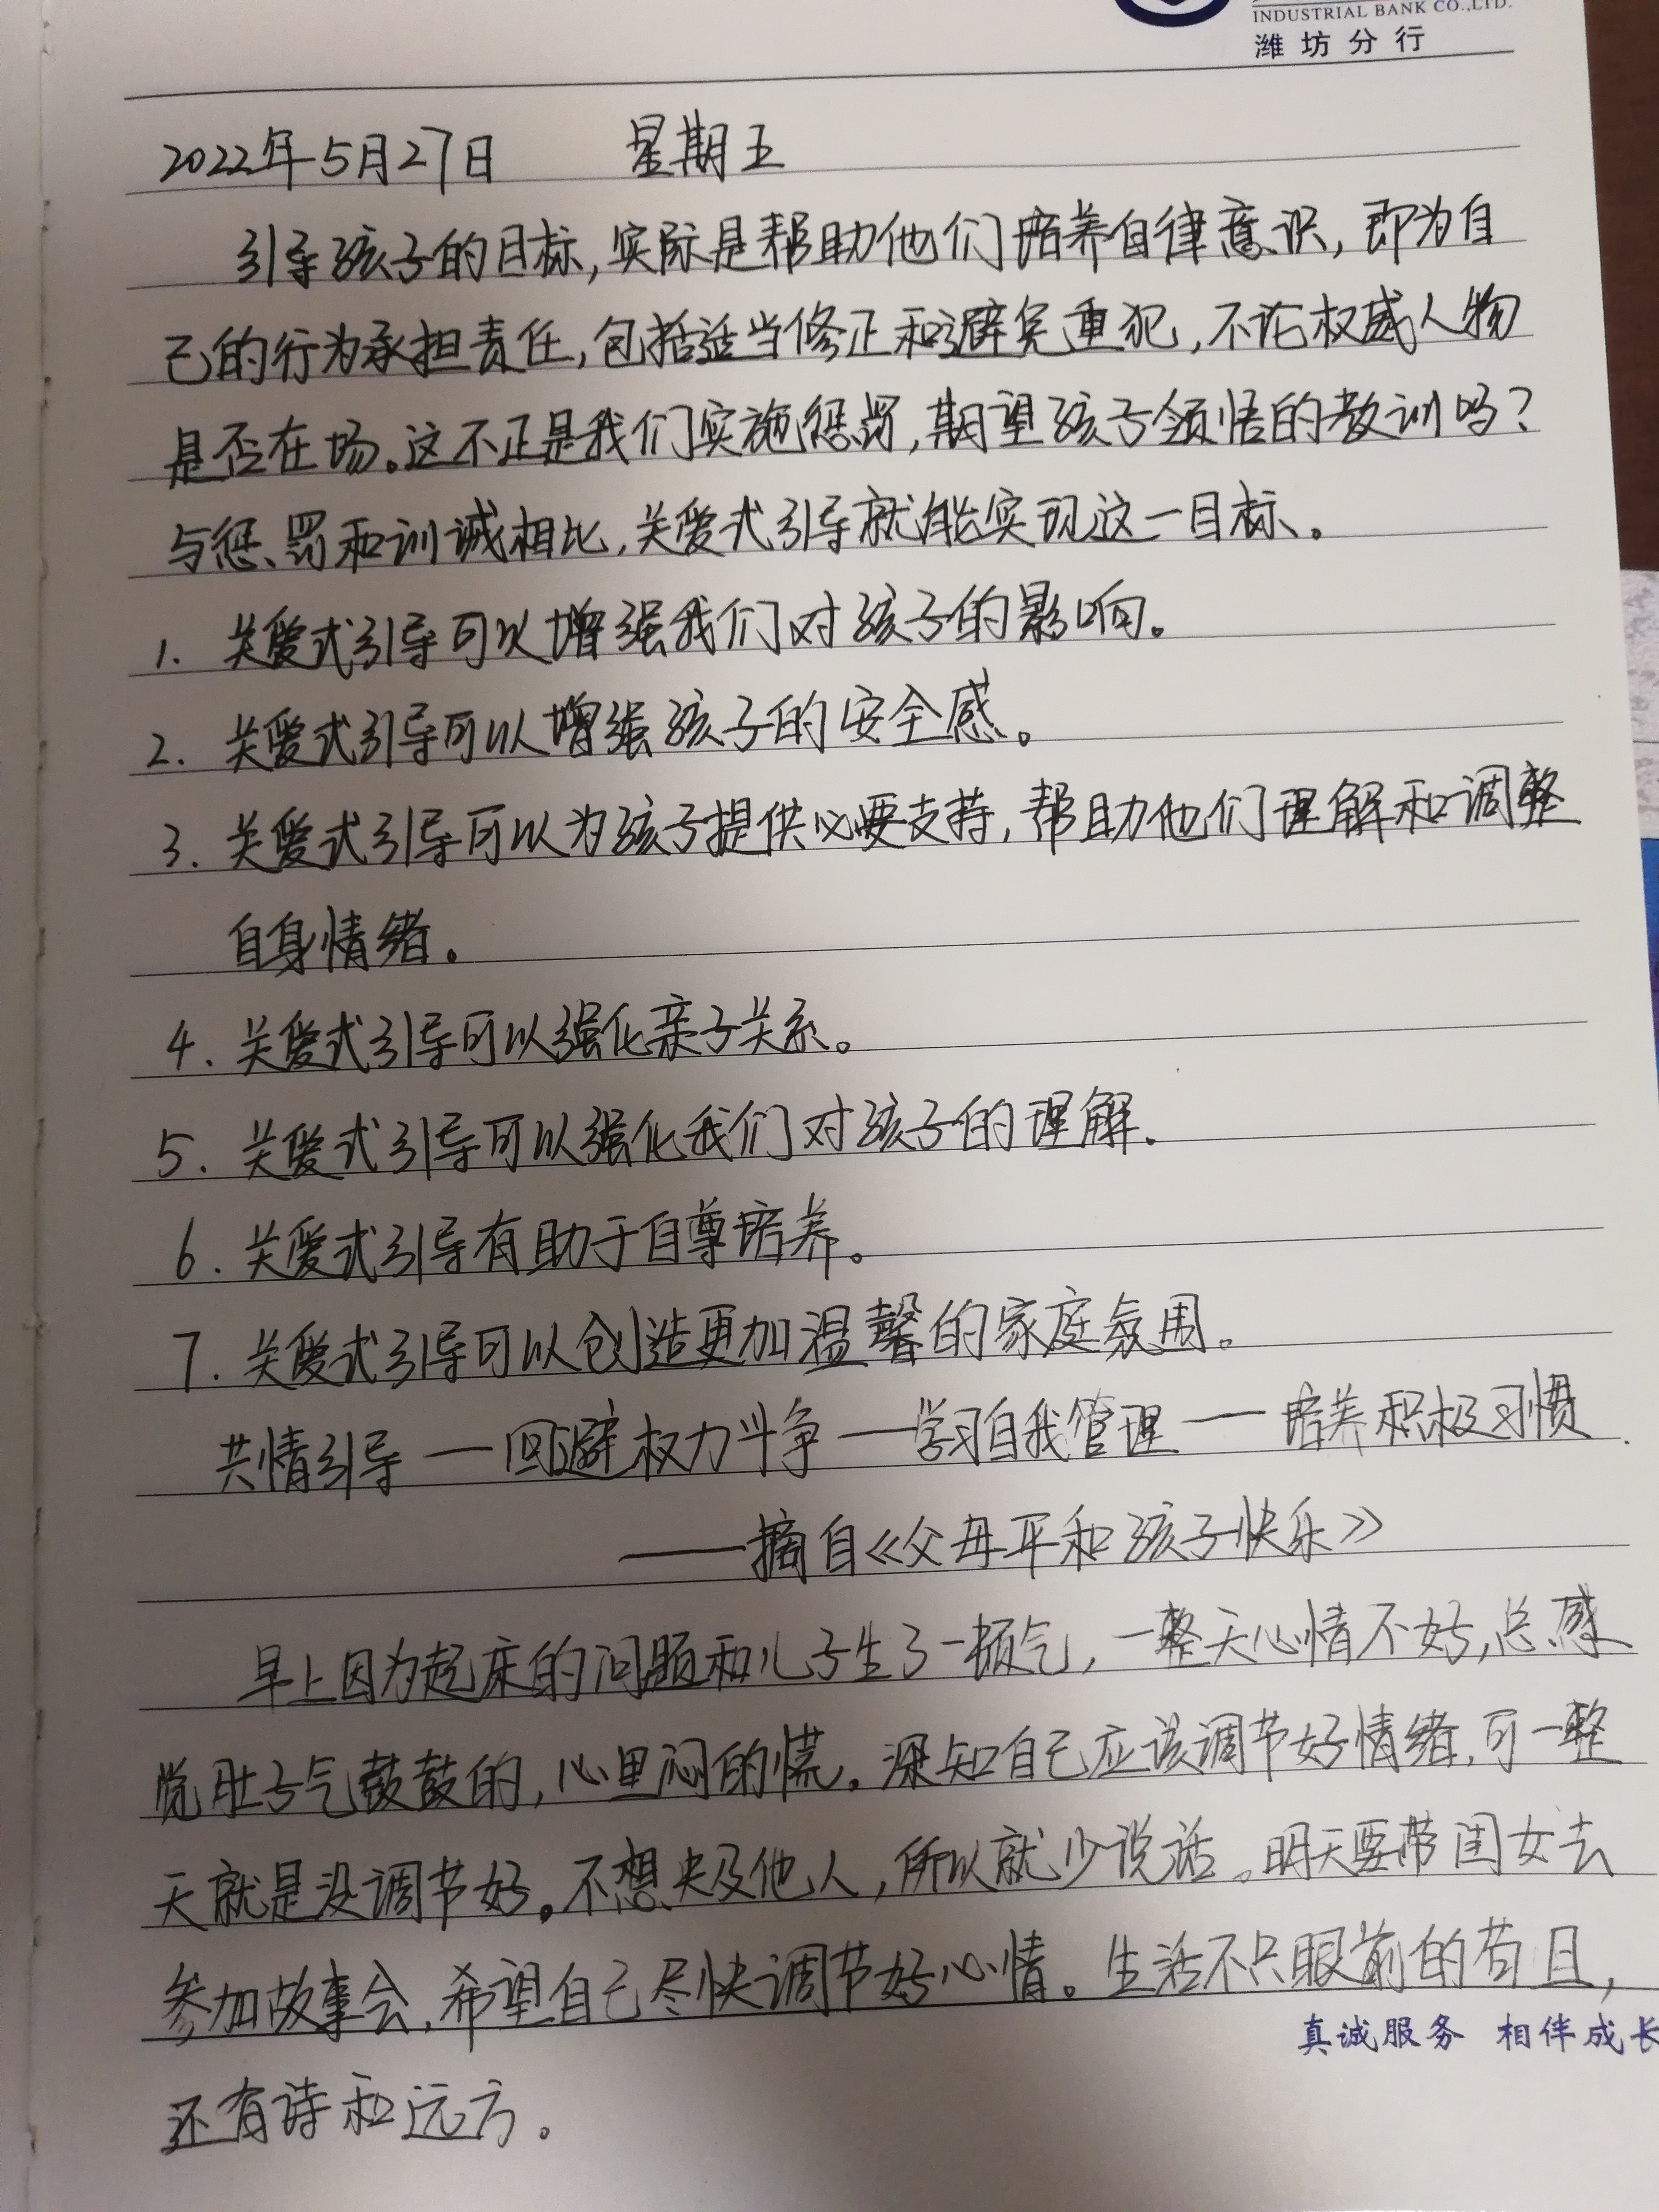 INDUSTRIAL BANK CO.,LTD.
潍坊分行
2022年5月27日 星期五
引导孩子的目标,实际是帮助他们培养自律意识,即为自
己的行为承担责任,包括适当修正和避免重犯,不论权威人物
是否在场。这不正是我们实施惩罚,期望孩子领悟的教训吗?
与惩罚和训诫相比,关爱式引导就能实现这一目标。
1. 关爱式引导可以增强我们对孩子的影响。
2. 关爱式引导可以增强孩子的安全感。
3. 关爱式引导可以为孩子提供必要支持,帮助他们理解和调整
自身情绪。
4. 关爱式引导可以强化亲子关系。
5. 关爱式引导可以强化我们对孩子的理解.
6. 关爱式引导有助于自尊培养。
7. 关爱式引导可以创造更加温馨的家庭氛围。
共情引导—回避权力斗争—学习自我管理—培养积极习惯.
——摘自《父母平和孩子快乐》
早上因为起床的问题和儿子生了一顿气,一整天心情不好,总感
觉肚子气鼓鼓的,心里闷的慌。深知自己应该调节好情绪,可一整
天就是没调节好。不想央及他人,所以就少说话。明天要带闺女去
参加故事会,希望自己尽快调节好心情。生活不只眼前的苟且,
真诚服务 相伴成长
还有诗和远方。